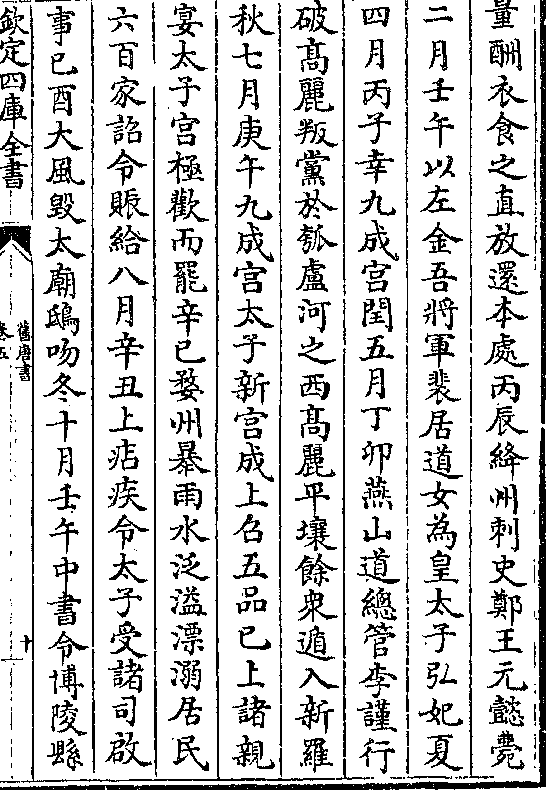 量酬衣食之直放還本處丙辰絳州刺史鄭王元懿薨
二月壬午以左金吾將軍裴居道女為皇太子弘妃夏
四月丙子幸九成宫閏五月丁卯燕山道總管李謹行
破髙麗叛黨於瓠盧河之西髙麗平壤餘衆遁入新羅
秋七月庚午九成宫太子新宫成上召五品已上諸親
宴太子宫極歡而罷辛巳婺州暴雨水泛溢漂溺居民
六百家詔令賑給八月辛丑上痁疾令太子受諸司啟
事已酉大風毁太廟鴟吻冬十月壬午中書令博陵縣
欽定四庫全書
舊唐書
卷五
十